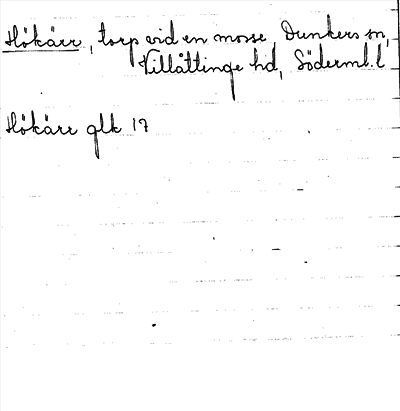 Hökärr, torp vid en mosse, Dunkers sn,
Villåttinge hd, Söderml. l
Hökärr glk 17